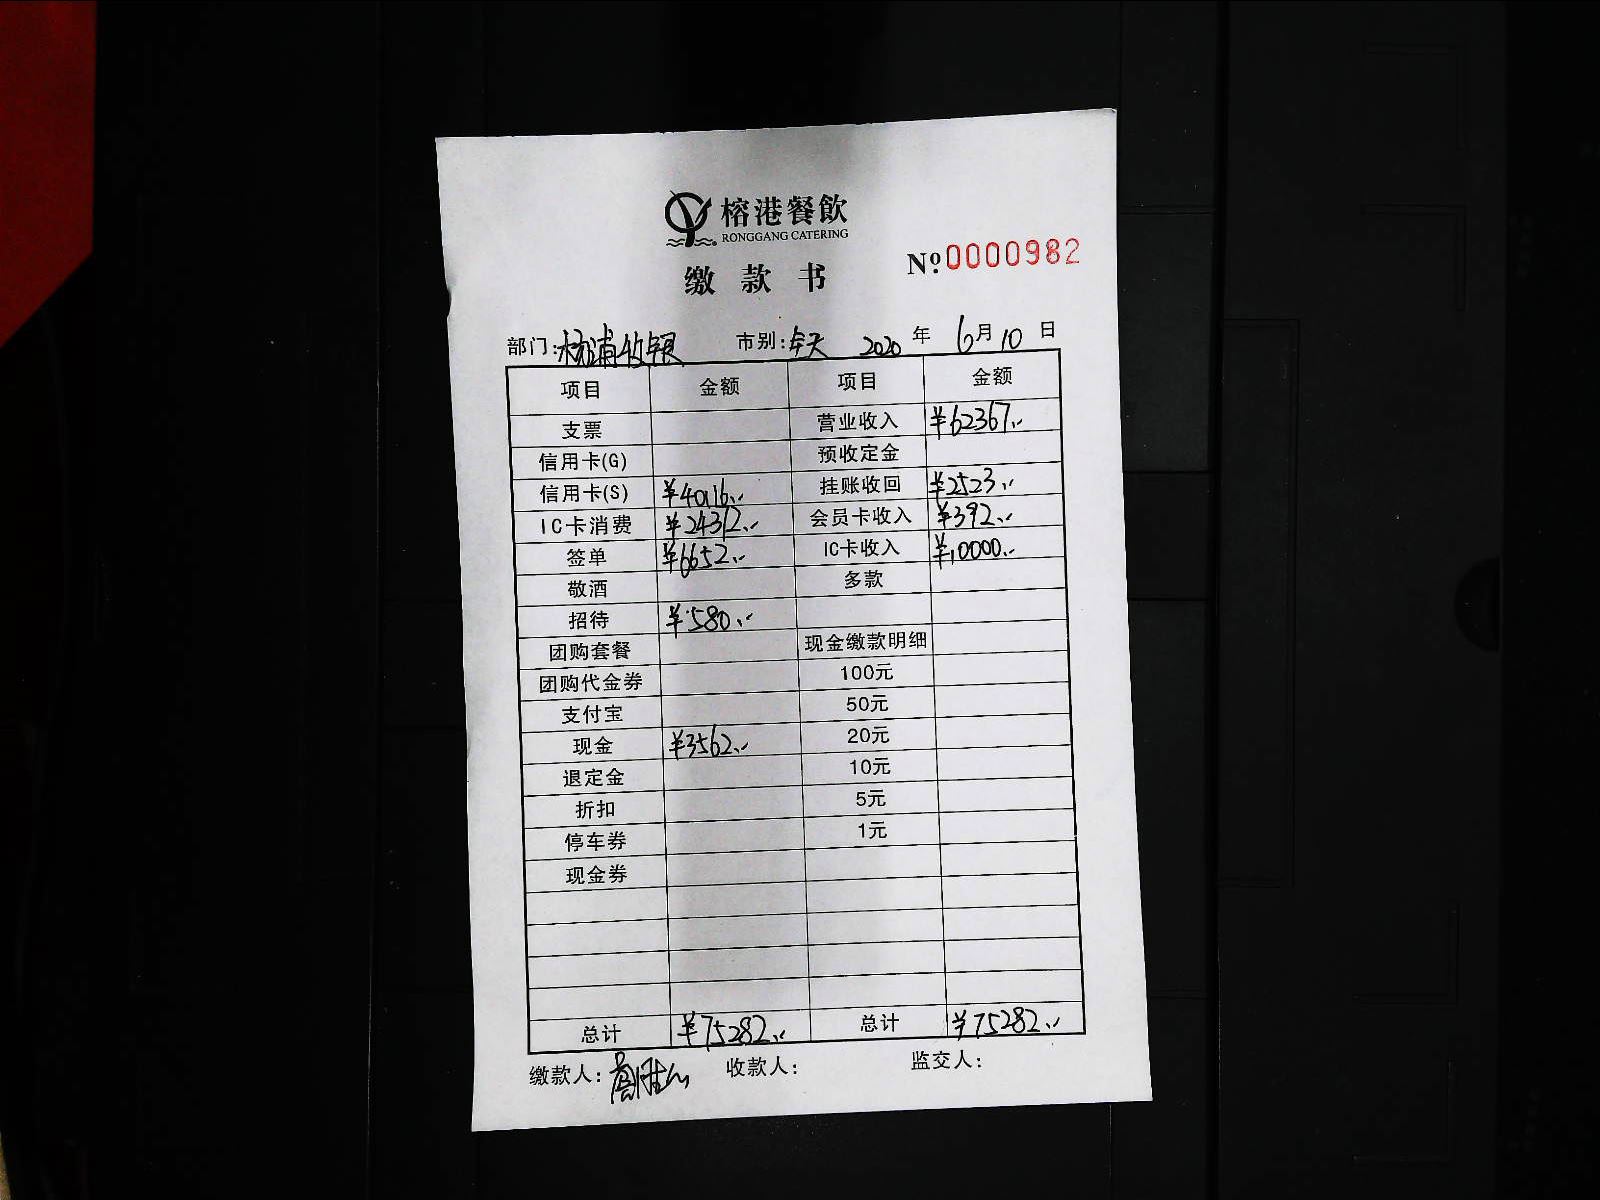 榕港餐飲
RONGGANG CATERING
缴款书
Nº 0000982
部门:杨浦收银 市别:全天 2020年6月10日
项目 金额 项目 金额
支票 营业收入 ¥62367.-
信用卡(G) 预收定金
信用卡(S) ¥40116.- 挂账收回 ¥2523.-
IC卡消费 ¥24372.- 会员卡收入 ¥392.-
签单 ¥6652.- IC卡收入 ¥10000.-
敬酒 多款
招待 ¥580.-
团购套餐 现金缴款明细
团购代金券 100元
支付宝 50元
现金 ¥3562.- 20元
退定金 10元
折扣 5元
停车券 1元
现金券
总计 ¥75282.- 总计 ¥75282.-
缴款人: 收款人: 监交人: